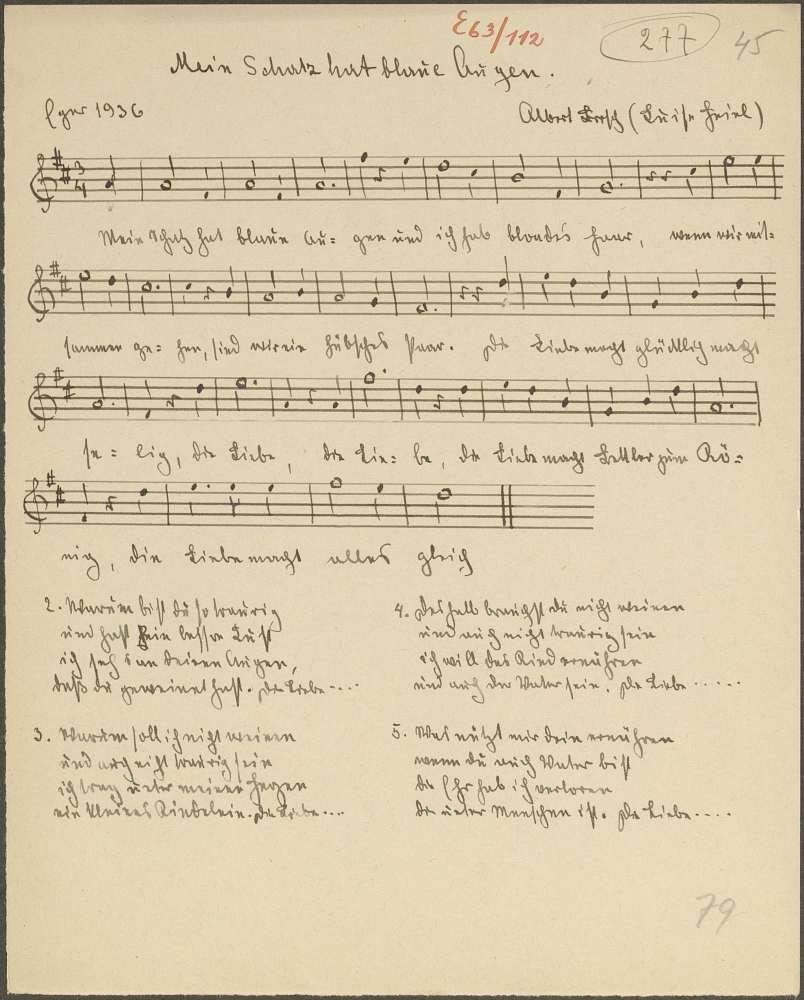 E63/112
277 45
Mein Schatz hat blaue Augen.
Eger 1936 Albert Brosch (Luise Heinl)
3
4
Mein Schatz hat blaue Au= gen und ich hab blondes Haar, wenn wir mit=
sammen ge= hen, sind wir ein hübsches Paar. Die Liebe macht glücklich macht
se= lig, die Liebe, die Lie= be, die Liebe macht Bettler zum Kö=
nig, die Liebe macht alles gleich
2. Warum bist du so traurig
und hast kein bessre Lust
ich seh's an deinen Augen,
daß du geweinet hast. Die Liebe ....
3. Warum soll ich nicht weinen
und auch nicht traurig sein
ich trag unter meinen Herzen
ein kleines Kindelein. Die Liebe ...
4. Deshalb brauchst du nicht weinen
und auch nicht traurig sein
ich will das Kind ernähren
und auch der Vater sein. Die Liebe .....
5. Was nützt mir dein ernähren
wenn du auch Vater bist
die Ehr hab ich verloren
die unter Menschen ist. Die Liebe ....
79